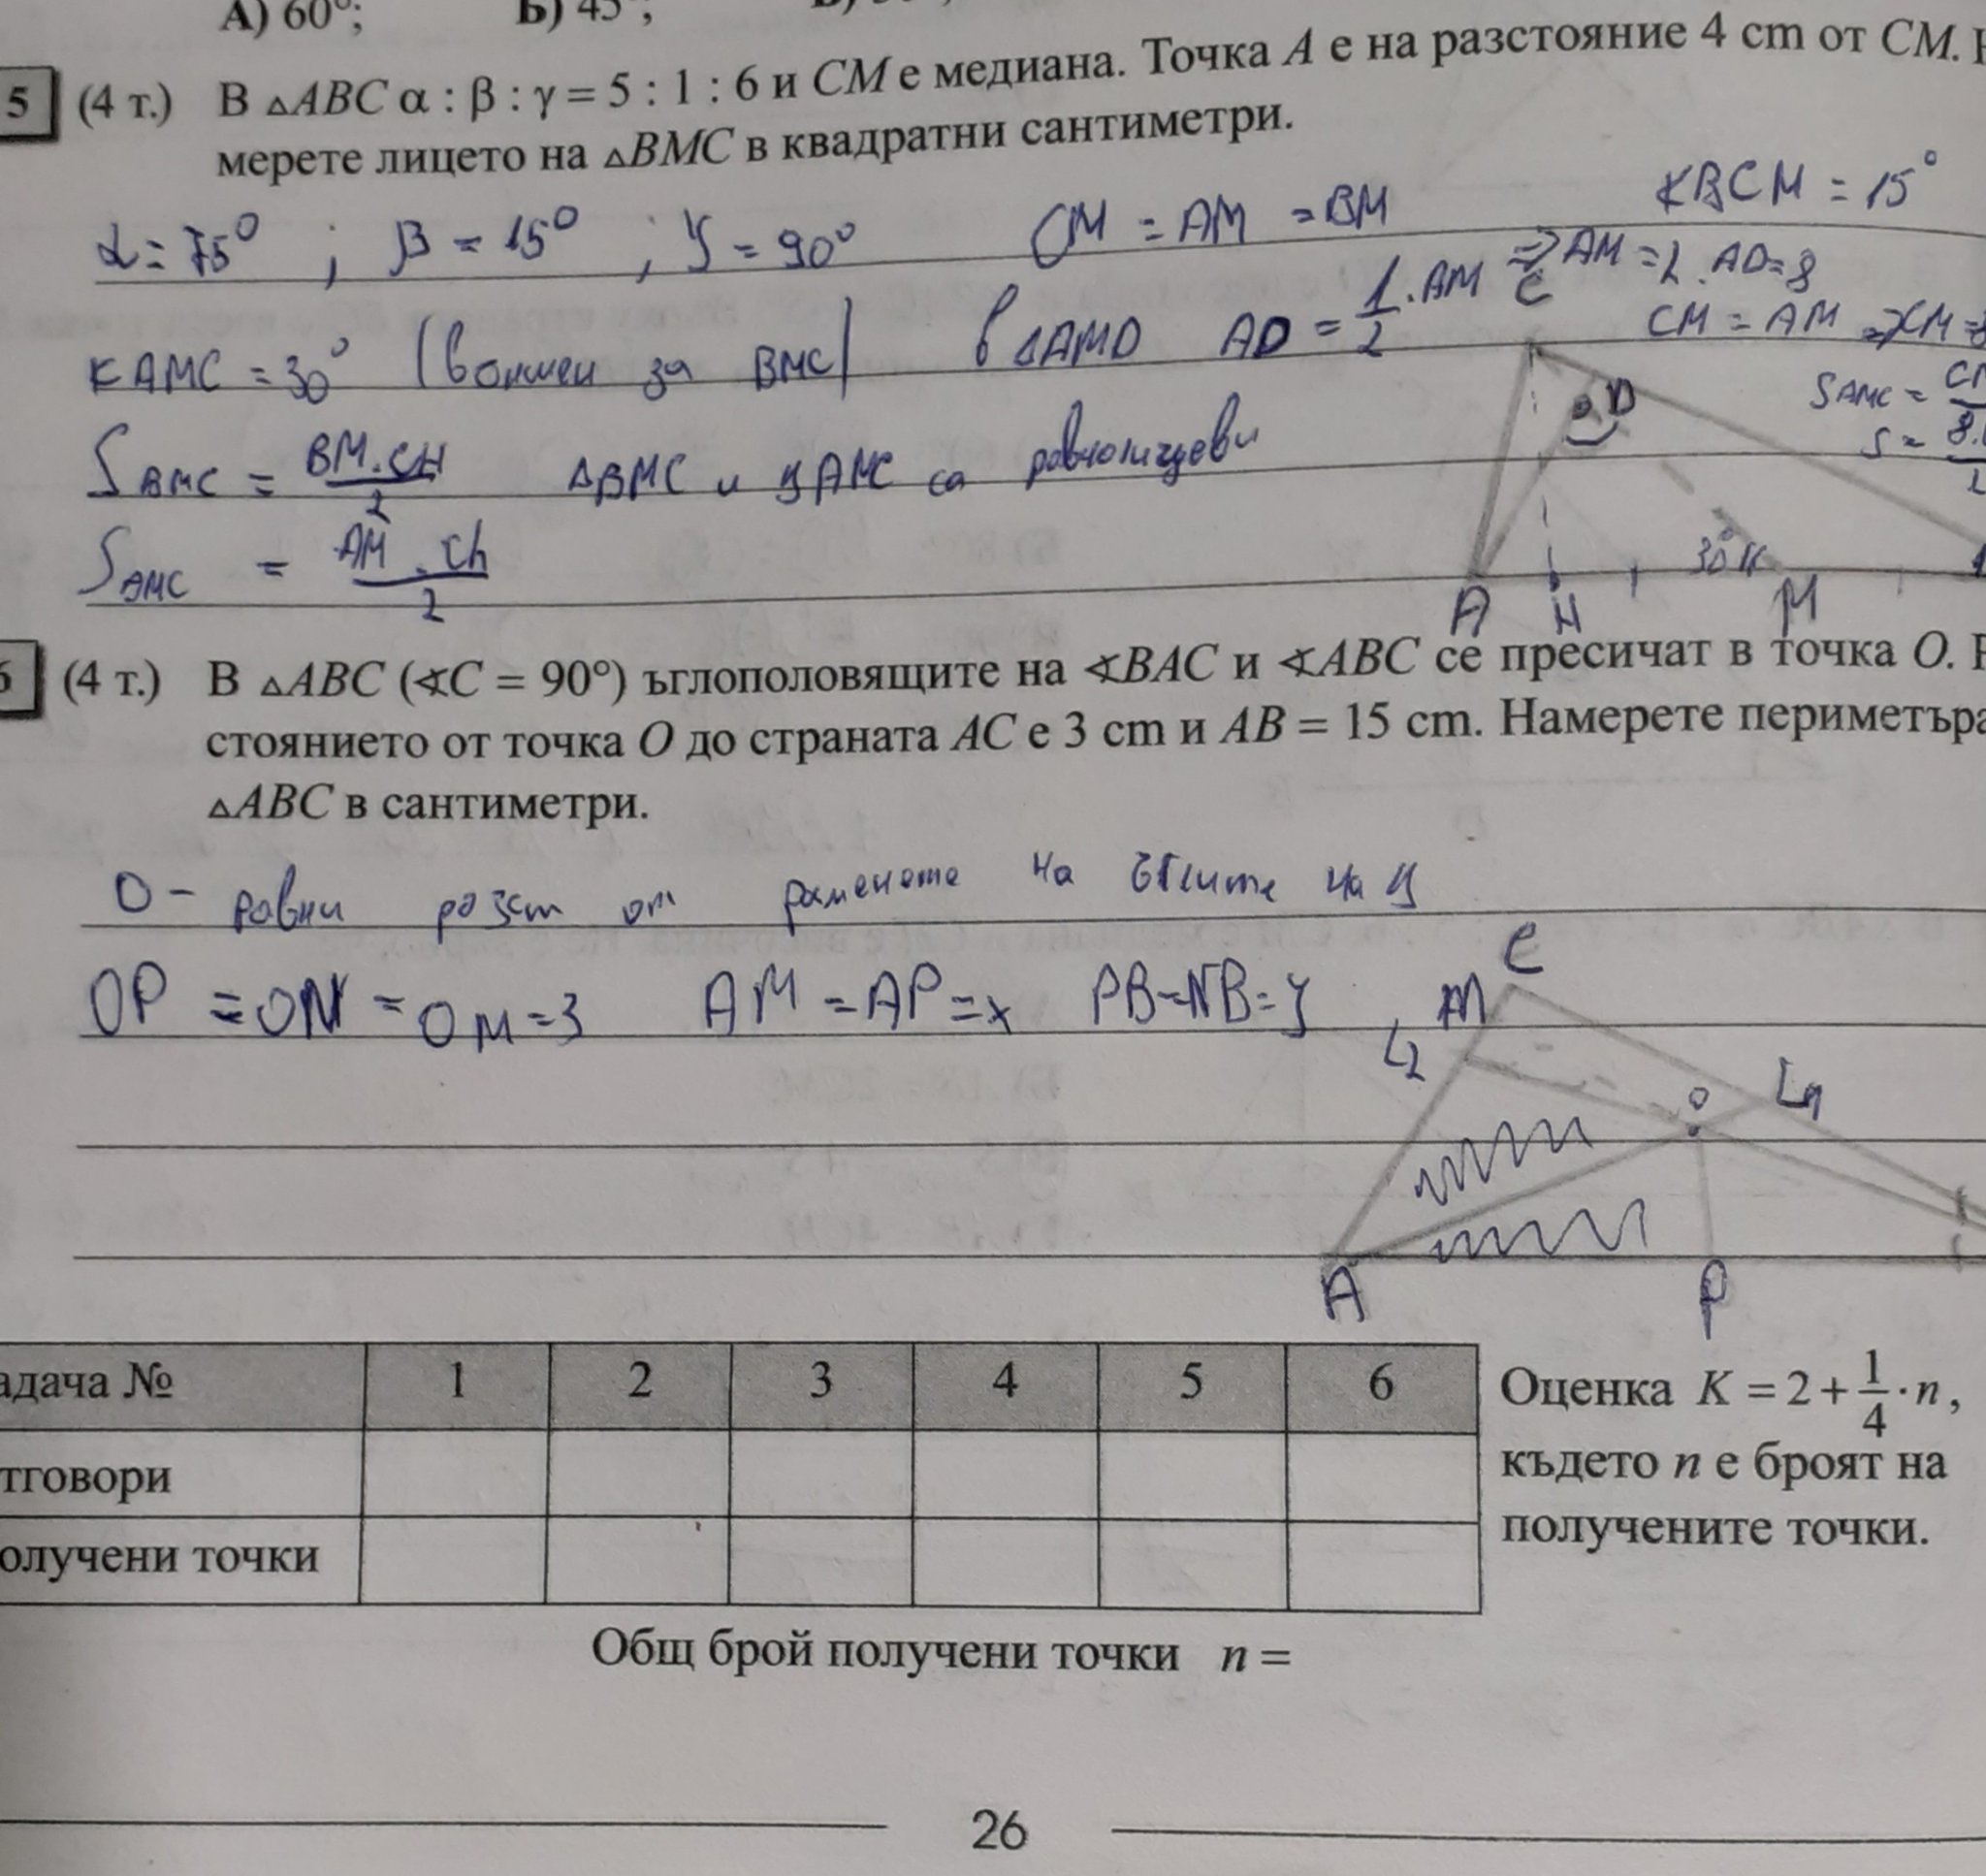 А) 60°; Б) 45°;
5 (4 т.) В △ABC α : β : γ = 5 : 1 : 6 и CM е медиана. Точка A е на разстояние 4 cm от CM.
мерете лицето на △BMC в квадратни сантиметри.
∢BCM = 15°
α = 75° ; β = 15° ; γ = 90° CM = AM = BM
∢AMC = 30° (външен за BMC) в △AMD AD = 1/2 . AM => AM = 2 . AD = 8
C
CM = AM => CM =
D
S AMC = 
S = 8.
S BMC = BM.CH/2 △BMC и △AMC са равнолицеви
S AMC = AM . Ch/2
30°
A H M
(4 т.) В △ABC (∢C = 90°) ъглополовящите на ∢BAC и ∢ABC се пресичат в точка O.
стоянието от точка O до страната AC е 3 cm и AB = 15 cm. Намерете периметъра
△ABC в сантиметри.
O - равни разст от раменете на ъглите на
C
OP = ON = OM = 3 AM = AP = x PB = NB = y
M
L2 O L1
A P
адача № 1 2 3 4 5 6
тговори
олучени точки
Оценка K = 2 + 1/4 · n,
където n е броят на
получените точки.
Общ брой получени точки n =
26